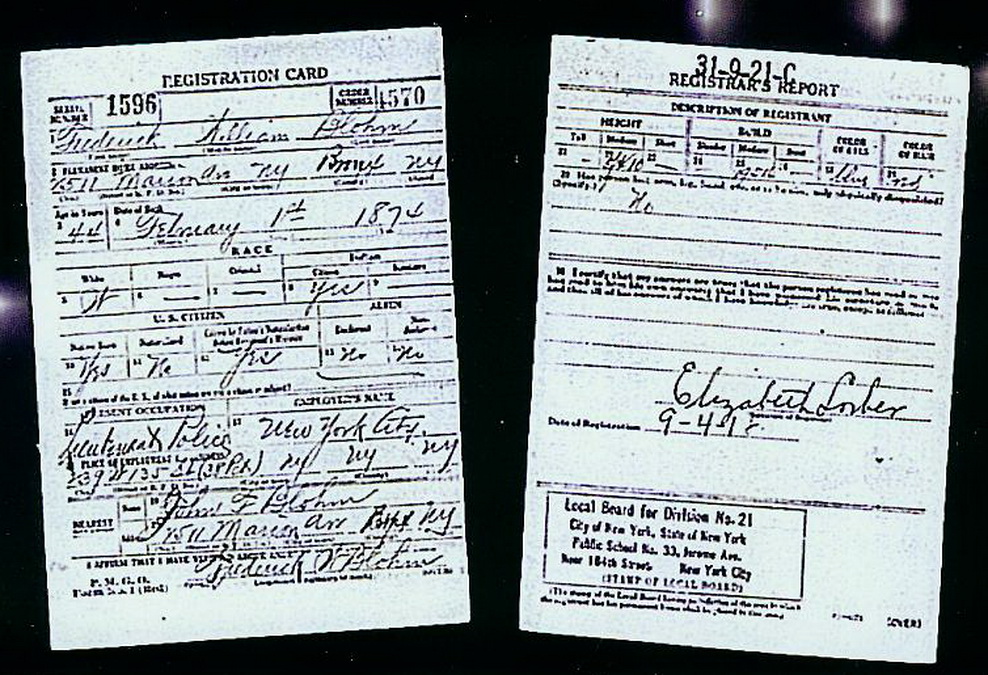 REGISTRATION CARD
SERIAL NUMBER 1596 ORDER NUMBER 4570
1 Frederick William Blohm
2 PERMANENT HOME ADDRESS
2511 Marion Av NY Bronx NY
Age in Years Date of Birth
3 44 4 February 1st 1874
RACE
White Negro Oriental Indian
Citizen
5 6 — 7 — 8 Yes 9 —
U. S. CITIZEN ALIEN
Native Born Naturalized Citizen by Father's Naturalization Declarant
10 Yes 11 No 12 Yes 13 No 14 No
15
PRESENT OCCUPATION EMPLOYER'S NAME
16 Lieutenant Police 17 New York City
18 PLACE OF EMPLOYMENT
239 W 135 St NY NY NY
NEAREST Name 19 John F Blohm
Address 20 2511 Marion Av Bronx NY
I AFFIRM THAT I HAVE
Frederick W Blohm
P. M. G. O.
Form No. 1 (Red)
(OVER)
31-9-21-C
REGISTRAR'S REPORT
DESCRIPTION OF REGISTRANT
HEIGHT BUILD COLOR OF EYES COLOR OF HAIR
Tall Medium Short Slender Medium Stout
21 — 22 23 — 24 25 26 — 27 28
29 Has person lost arm, leg, hand, eye, or is he obviously physically disqualified?
(Specify.)
No
30 I certify that my answers are true; that the person registered has read or has
had read to him his own answers; that I have witnessed his signature or mark,
and that all of his answers of which I have knowledge are true, except as follows:
Elizabeth
Date of Registration 9-4-18
Local Board for Division No. 21
City of New York, State of New York
Public School No. 33, Jerome Ave.
Near 184th Street New York City
(STAMP OF LOCAL BOARD)
(The stamp of the Local Board having jurisdiction of the area in which
the registrant has his permanent home shall be placed in this box.)
(OVER)